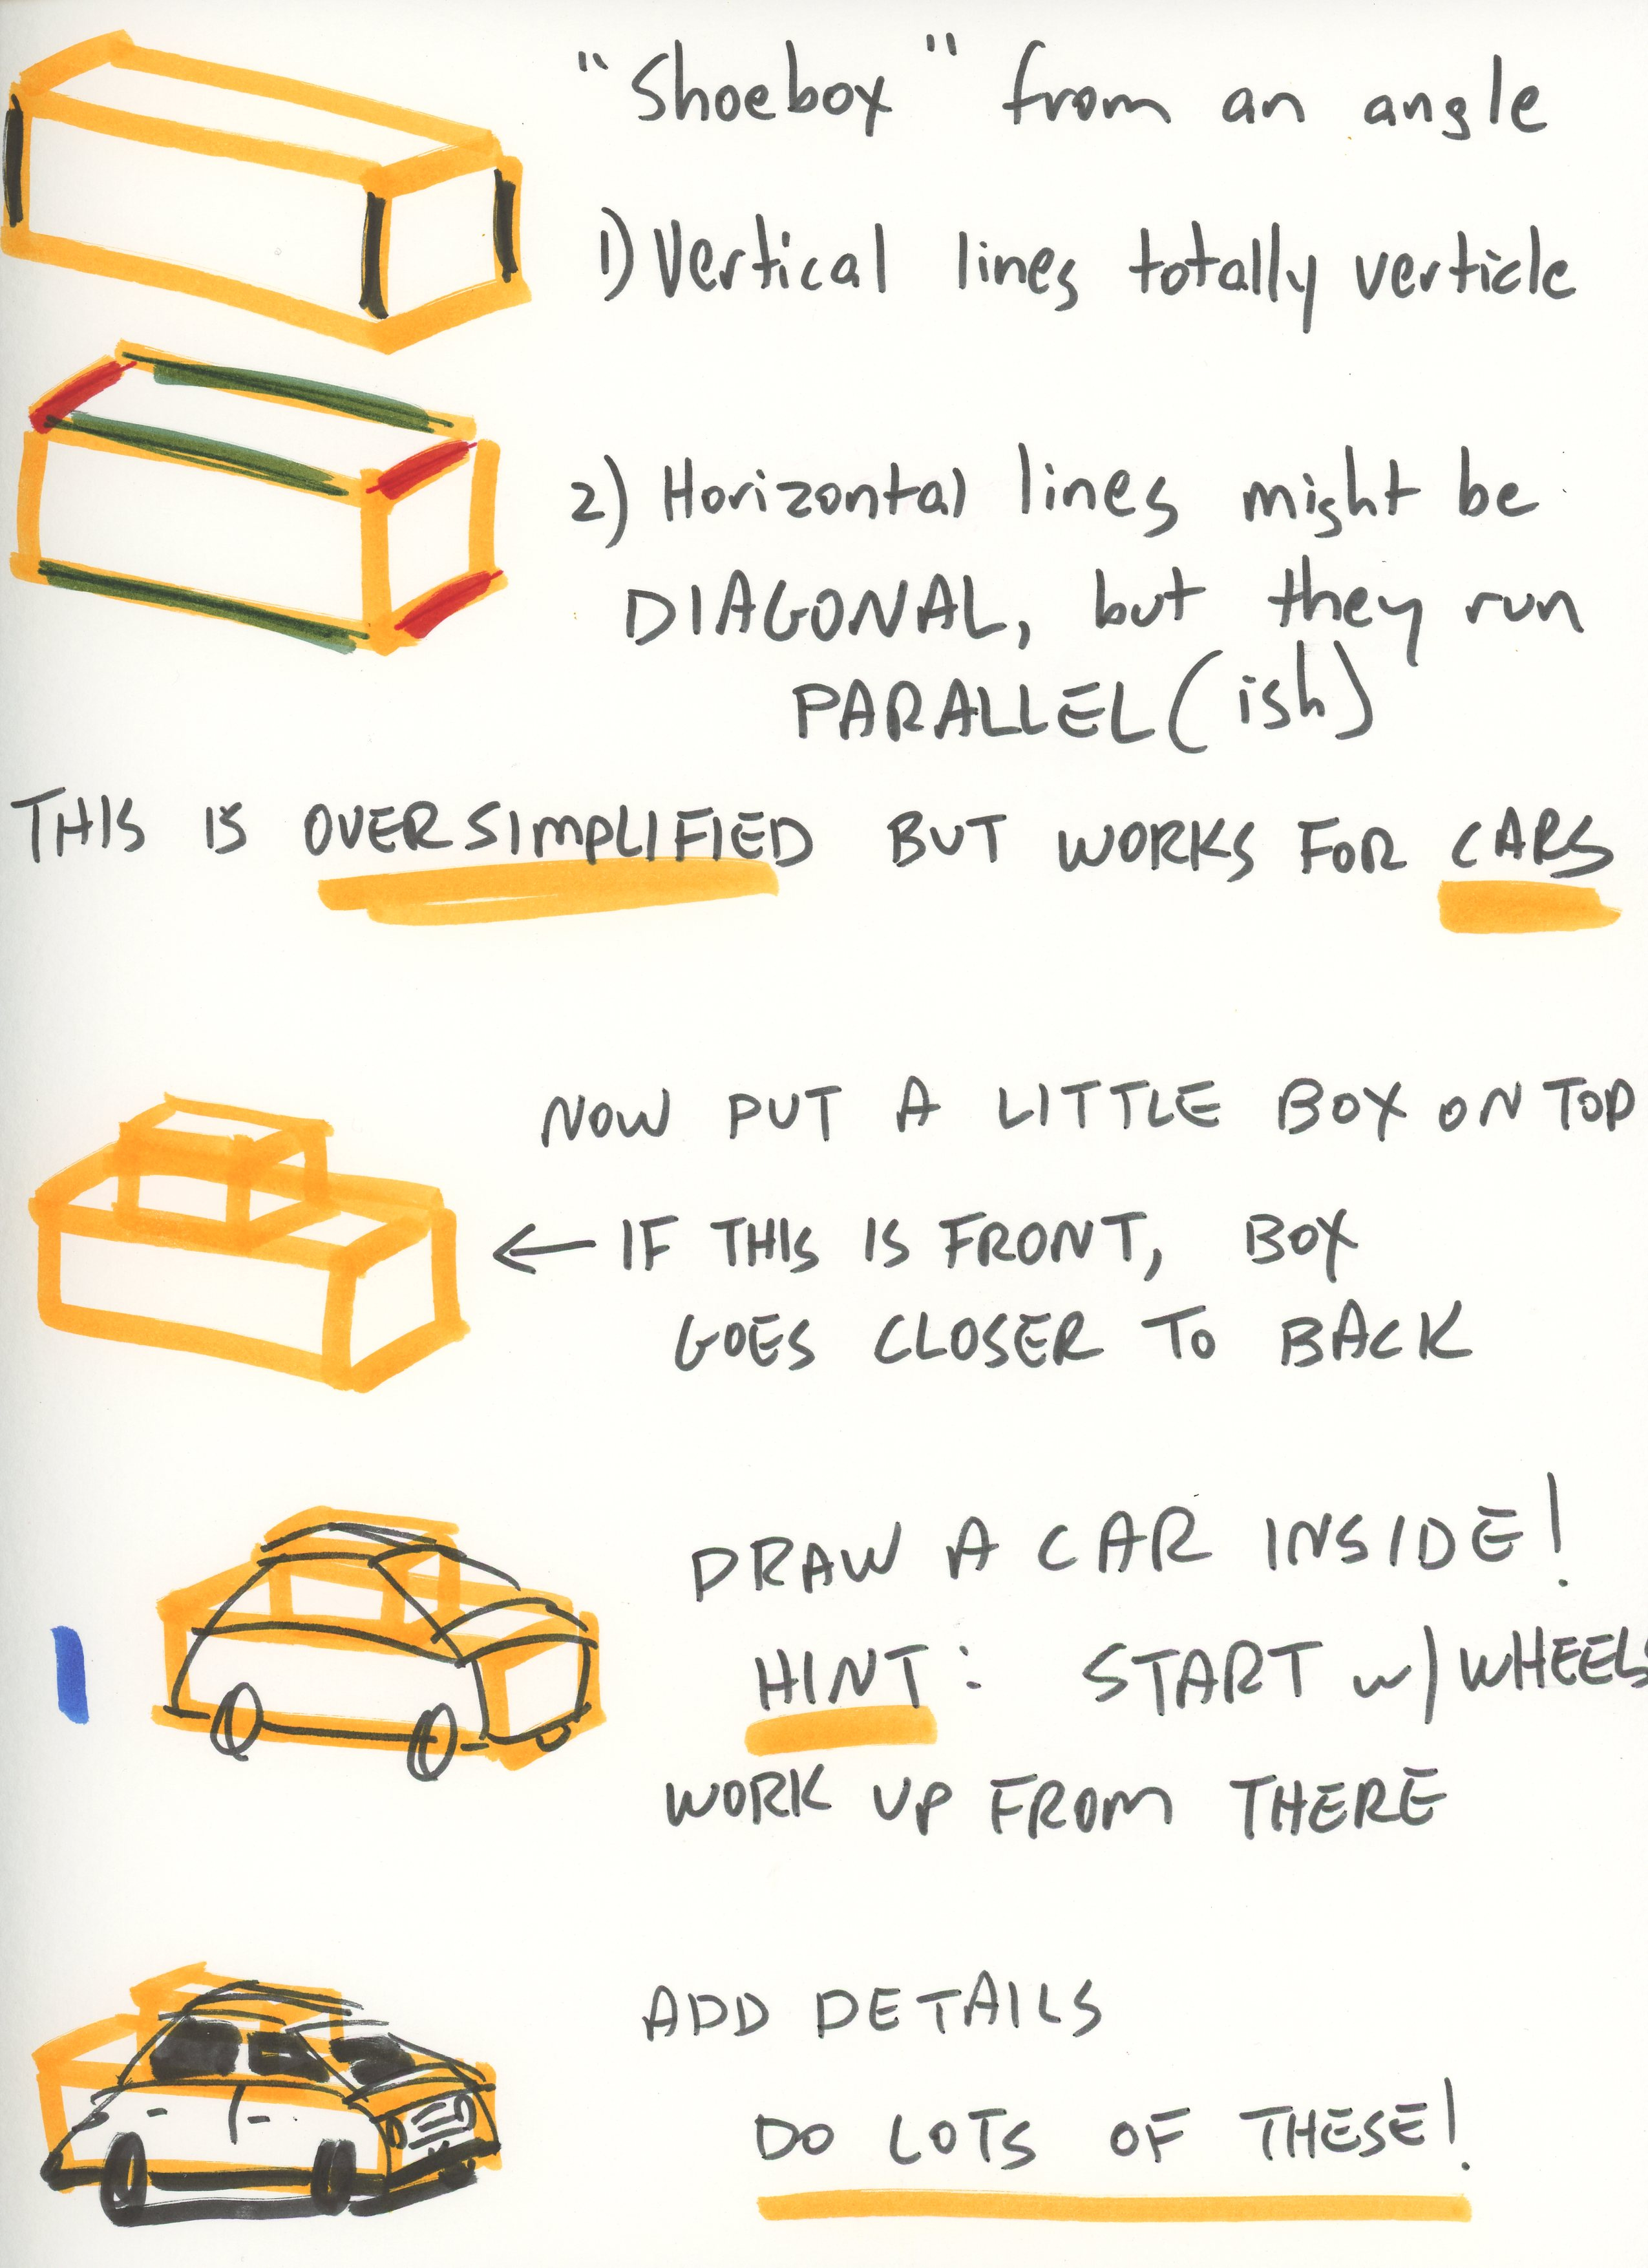 "Shoebox" from an angle
1) Vertical lines totally verticle
2) Horizontal lines might be
DIAGONAL, but they run
PARALLEL(ish)
THIS IS OVERSIMPLIFIED BUT WORKS FOR CARS
NOW PUT A LITTLE BOX ON TOP
← IF THIS IS FRONT, BOX
GOES CLOSER TO BACK
DRAW A CAR INSIDE!
HINT: START w/ WHEELS
WORK UP FROM THERE
ADD DETAILS
DO LOTS OF THESE!